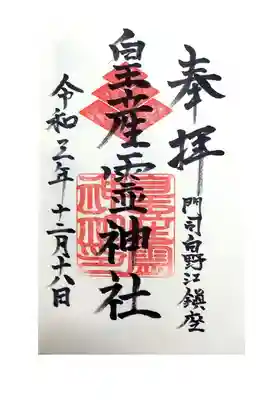 奉拝
門司白野江鎮座
皇産霊神社
令和三年十二月十八日